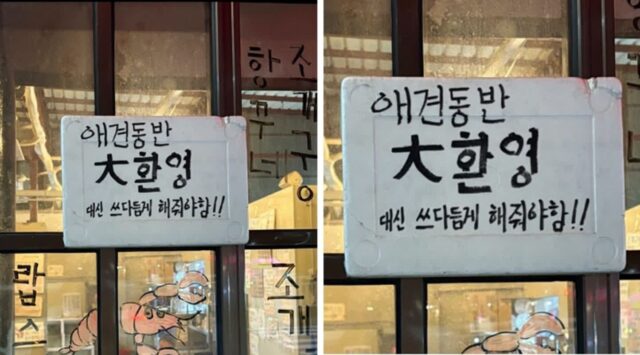 애견동반
大환영
대신 쓰다듬게 해줘야함!!
항구네
조개
애견동반
大환영
대신 쓰다듬게 해줘야함!!